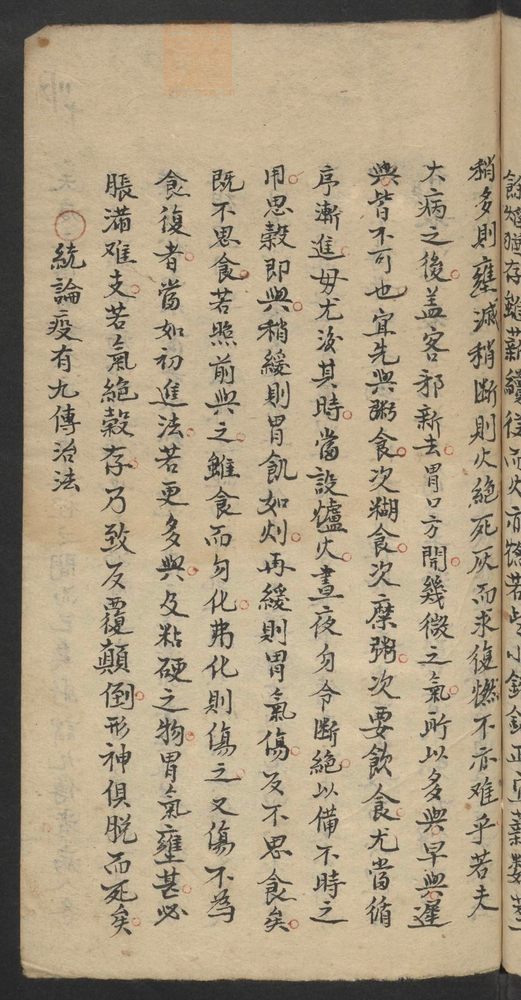 稍多則壅滅稍断則火絕死灰而求復燃不亦难乎若夫
大病之後盖客邪新去胃口方開幾微之氣所以多與早與遲
與皆不可也宜先與粥食次糊食次糜粥次要飲食尤當循
序漸進毋尤後其時當設爐火晝夜勿令断絕以備不時之
用思穀即與稍緩則胃飢如灼再緩則胃氣傷反不思食矣
既不思食若照前與之雖食而勿化弗化則傷之又傷不為
食復者當如初進法若更多與及粘硬之物胃氣壅甚必
脹滿难支若氣絕穀存乃致反覆顛倒形神俱脫而死矣
統論疫有九傳治法